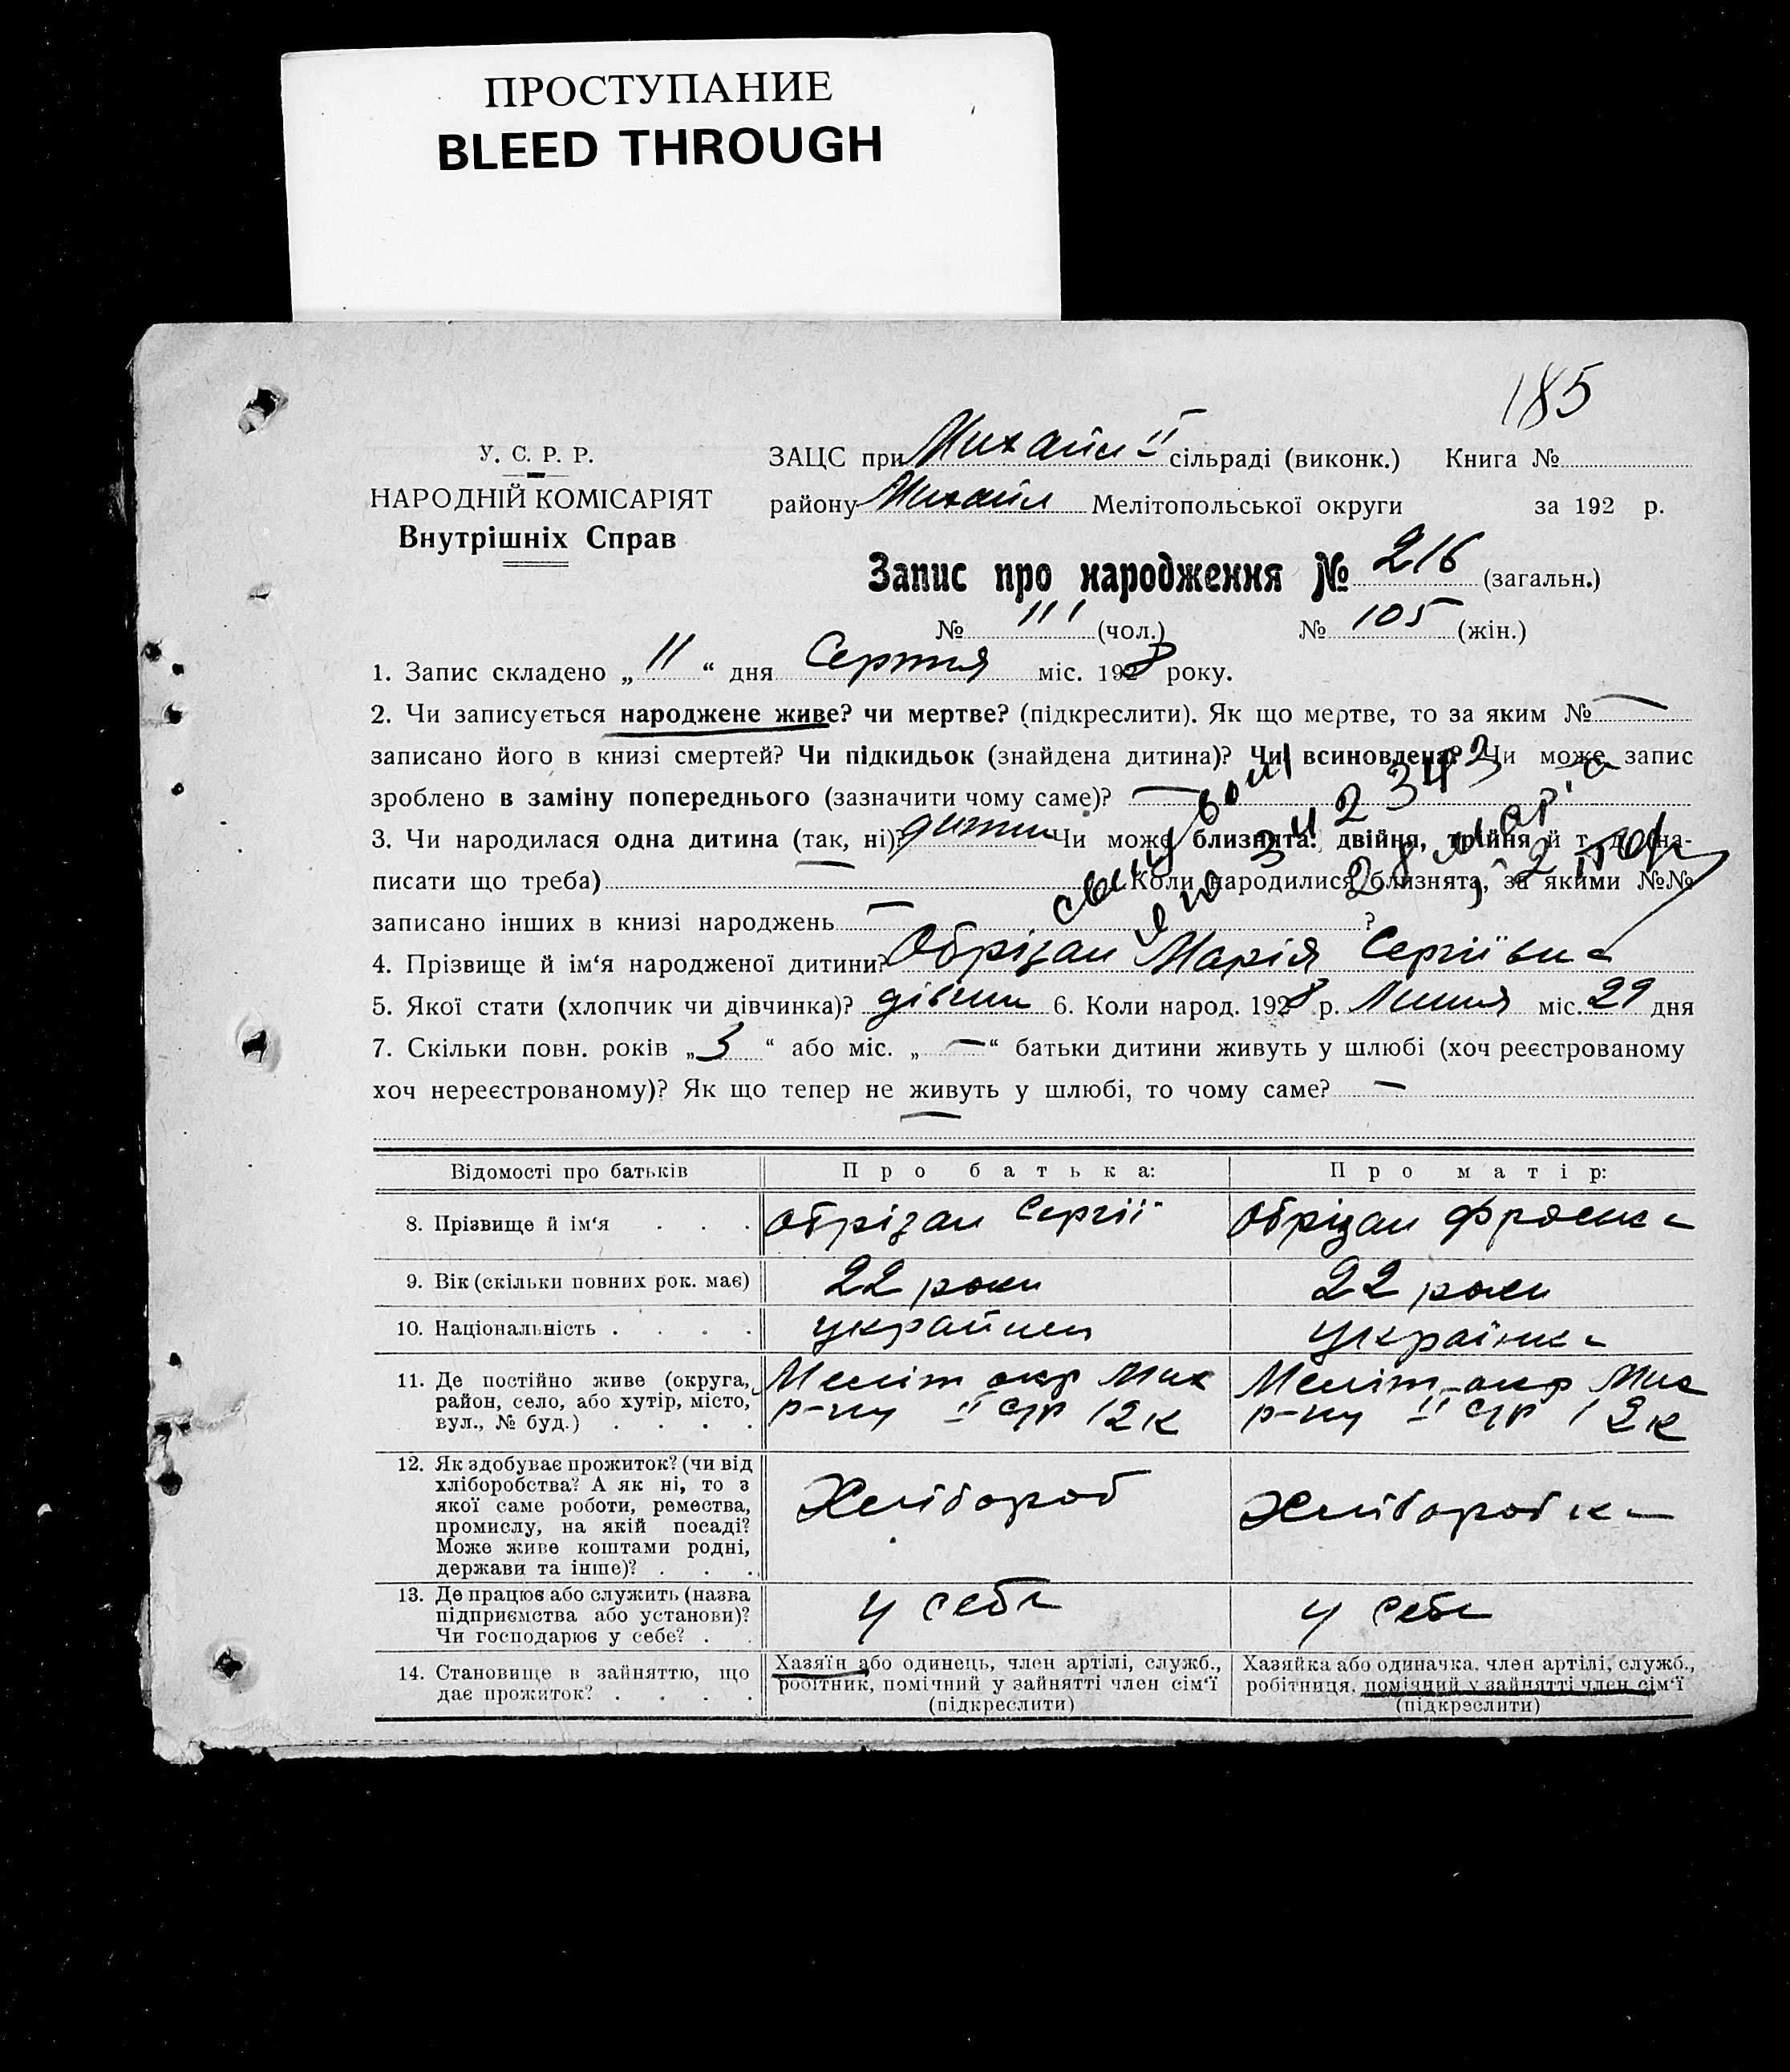 ПРОСТУПАНИЕ
BLEED THROUGH
185
У. С. Р. Р.
НАРОДНІЙ КОМІСАРІЯТ
Внутрішніх Справ
ЗАЦС при Михайл II сільраді (виконк.) Книга №
району Михайл Мелітопольської округи за 192 р.
Запис про народження № 216 (загальн.)
№ 111 (чол.) № 105 (жін.)
1. Запис складено „ 11 “ дня Серпня міс. 1928 року.
2. Чи записується народжене живе? чи мертве? (підкреслити). Як що мертве, то за яким № —
записано його в книзі смертей? Чи підкидьок (знайдена дитина)? Чи всиновлена? Чи може запис
зроблено в заміну попереднього (зазначити чому саме)? —
3. Чи народилася одна дитина (так, ні)? Чи може близнята: двійня, трійня й т. д. (на-
писати що треба) Коли народилися близнята, за якими №№
записано інших в книзі народжень — ?
4. Прізвище й ім‘я народженої дитини? Обрізан Марія Сергіївна
5. Якої стати (хлопчик чи дівчинка)? дівчин 6. Коли народ. 1928 р. Липня міс. 29 дня
7. Скільки повн. років „ 3 “ або міс. „ — “ батьки дитини живуть у шлюбі (хоч реєстрованому
хоч нереєстрованому)? Як що тепер не живуть у шлюбі, то чому саме? —
Відомості про батьків Про батька: Про матір:
8. Прізвище й ім‘я . . . Обрізан Сергій Обрізан
9. Вік (скільки повних рок. має) 22 роки 22 роки
10. Національність . . . . українец українка
11. Де постійно живе (округа, район, село, або хутір, місто, вул., № буд.) . . . .
Меліт окр Мих Меліт окр Мих
р-ну II с/р 12 к р-ну II с/р 12 к
12. Як здобуває прожиток? (чи від
хліборобства? А як ні, то з
якої саме роботи, ремества,
промислу, на якій посаді?
Може живе коштами родні,
держави та інше)? . . .
Хлібороб Хліборобка
13. Де працює або служить (назва
підприємства або установи)?
Чи господарює у себе? . .
у себе у себе
14. Становище в зайняттю, що
дає прожиток? . . . .
Хазяїн або одинець, член артілі, служб.,
робітник, помічний у зайнятті член сім‘ї
(підкреслити)
Хазяйка або одиначка, член артілі, служб.,
робітниця, помічний у зайнятті член сім‘ї
(підкреслити)